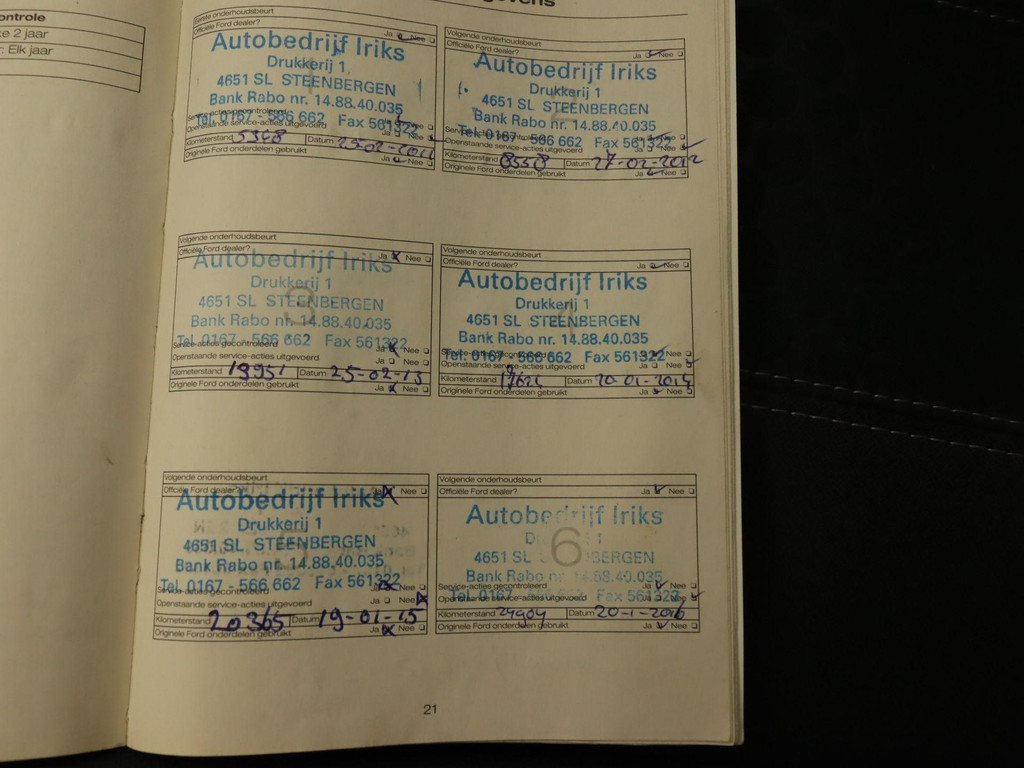 ontrole
e 2 jaar
: Elk jaar
Eerste onderhoudsbeurt
Officiële Ford dealer? Ja Nee
Autobedrijf Iriks
Drukkerij 1
4651 SL STEENBERGEN
Bank Rabo nr. 14.88.40.035
Tel. 0167 - 566 662 Fax 561322
Service-acties gecontroleerd
Openstaande service-acties uitgevoerd
Kilometerstand 5368 Datum 25-02-2011
Originele Ford onderdelen gebruikt Ja Nee
Volgende onderhoudsbeurt
Officiële Ford dealer? Ja Nee
Autobedrijf Iriks
Drukkerij 1
4651 SL STEENBERGEN
Bank Rabo nr. 14.88.40.035
Tel. 0167 - 566 662 Fax 561322
Openstaande service-acties uitgevoerd Ja Nee
Kilometerstand 8558 Datum 27-02-2012
Originele Ford onderdelen gebruikt Ja Nee
Volgende onderhoudsbeurt
Officiële Ford dealer? Ja Nee
Autobedrijf Iriks
3
Drukkerij 1
4651 SL STEENBERGEN
Bank Rabo nr. 14.88.40.035
Tel. 0167 - 566 662 Fax 561322
Service-acties gecontroleerd Ja Nee
Openstaande service-acties uitgevoerd Ja Nee
Kilometerstand 13951 Datum 25-02-13
Originele Ford onderdelen gebruikt Ja Nee
Volgende onderhoudsbeurt
Officiële Ford dealer? Ja Nee
Autobedrijf Iriks
4
Drukkerij 1
4651 SL STEENBERGEN
Bank Rabo nr. 14.88.40.035
Tel. 0167 - 566 662 Fax 561322
Service-acties gecontroleerd Ja Nee
Openstaande service-acties uitgevoerd Ja Nee
Kilometerstand 17621 Datum 20-01-2014
Originele Ford onderdelen gebruikt Ja Nee
Volgende onderhoudsbeurt
Officiële Ford dealer? Ja Nee
Autobedrijf Iriks
Drukkerij 1
4651 SL STEENBERGEN
Bank Rabo nr. 14.88.40.035
Tel. 0167 - 566 662 Fax 561322
Service-acties gecontroleerd Ja Nee
Openstaande service-acties uitgevoerd Ja Nee
Kilometerstand 20365 Datum 19-01-15
Originele Ford onderdelen gebruikt Ja Nee
Volgende onderhoudsbeurt
Officiële Ford dealer? Ja Nee
Autobedrijf Iriks
6
4651 SL STEENBERGEN
Bank Rabo nr. 14.88.40.035
Tel. 0167 Fax 561322
Service-acties gecontroleerd Ja Nee
Openstaande service-acties uitgevoerd Ja Nee
Kilometerstand 24904 Datum 20-1-2016
Originele Ford onderdelen gebruikt Ja Nee
21